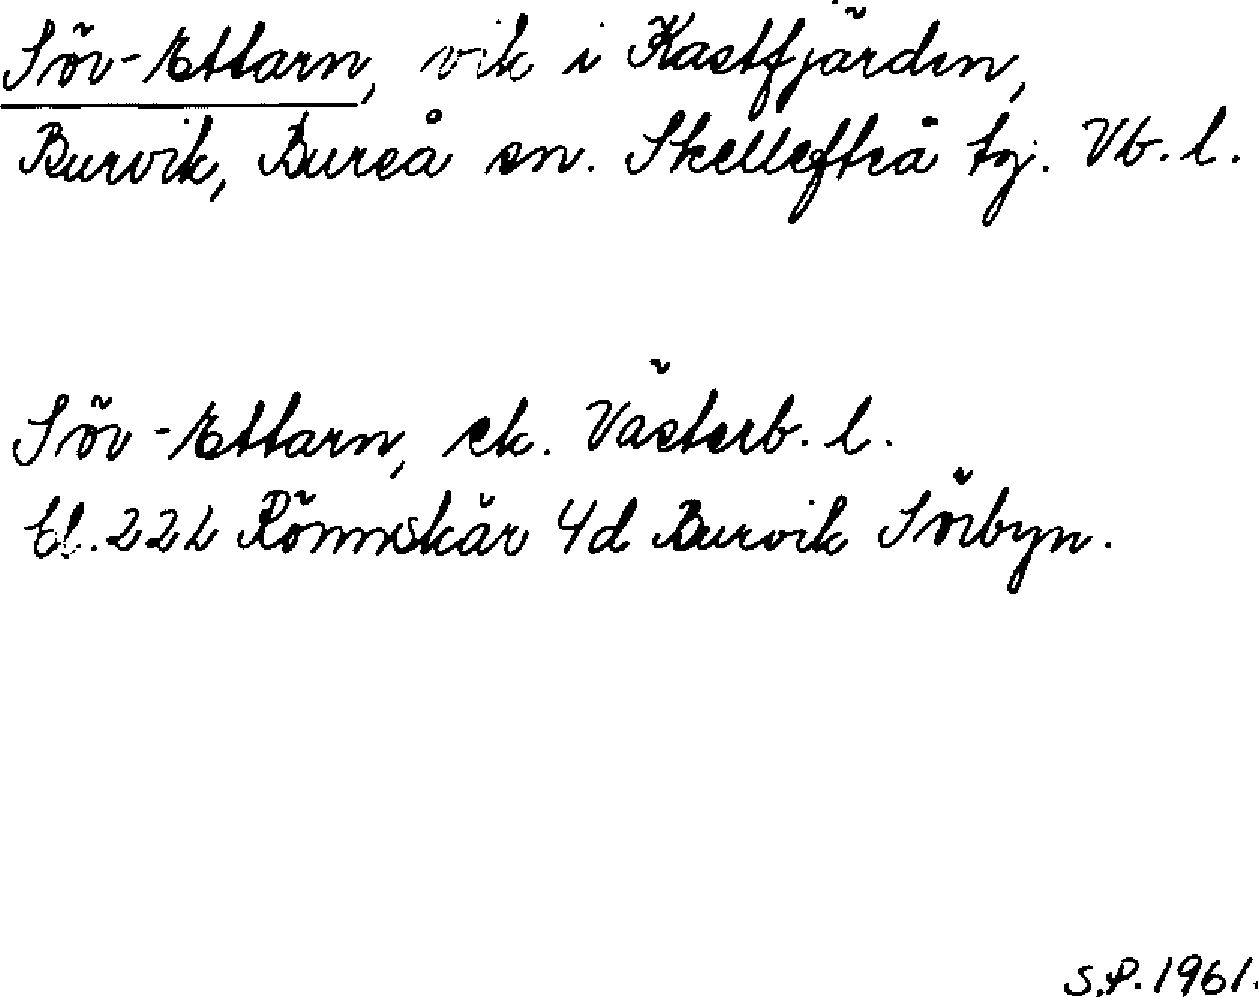 Söv-Ettarn, vik i Kastfjärden,
Burvik, Bureå sn. Skellefteå tg. Vb. l.
Söv-Ettarn, ek. Västerb. l.
bl. 22L Rönnskär 4d Burvik Sörbyn.
S.P. 1961.